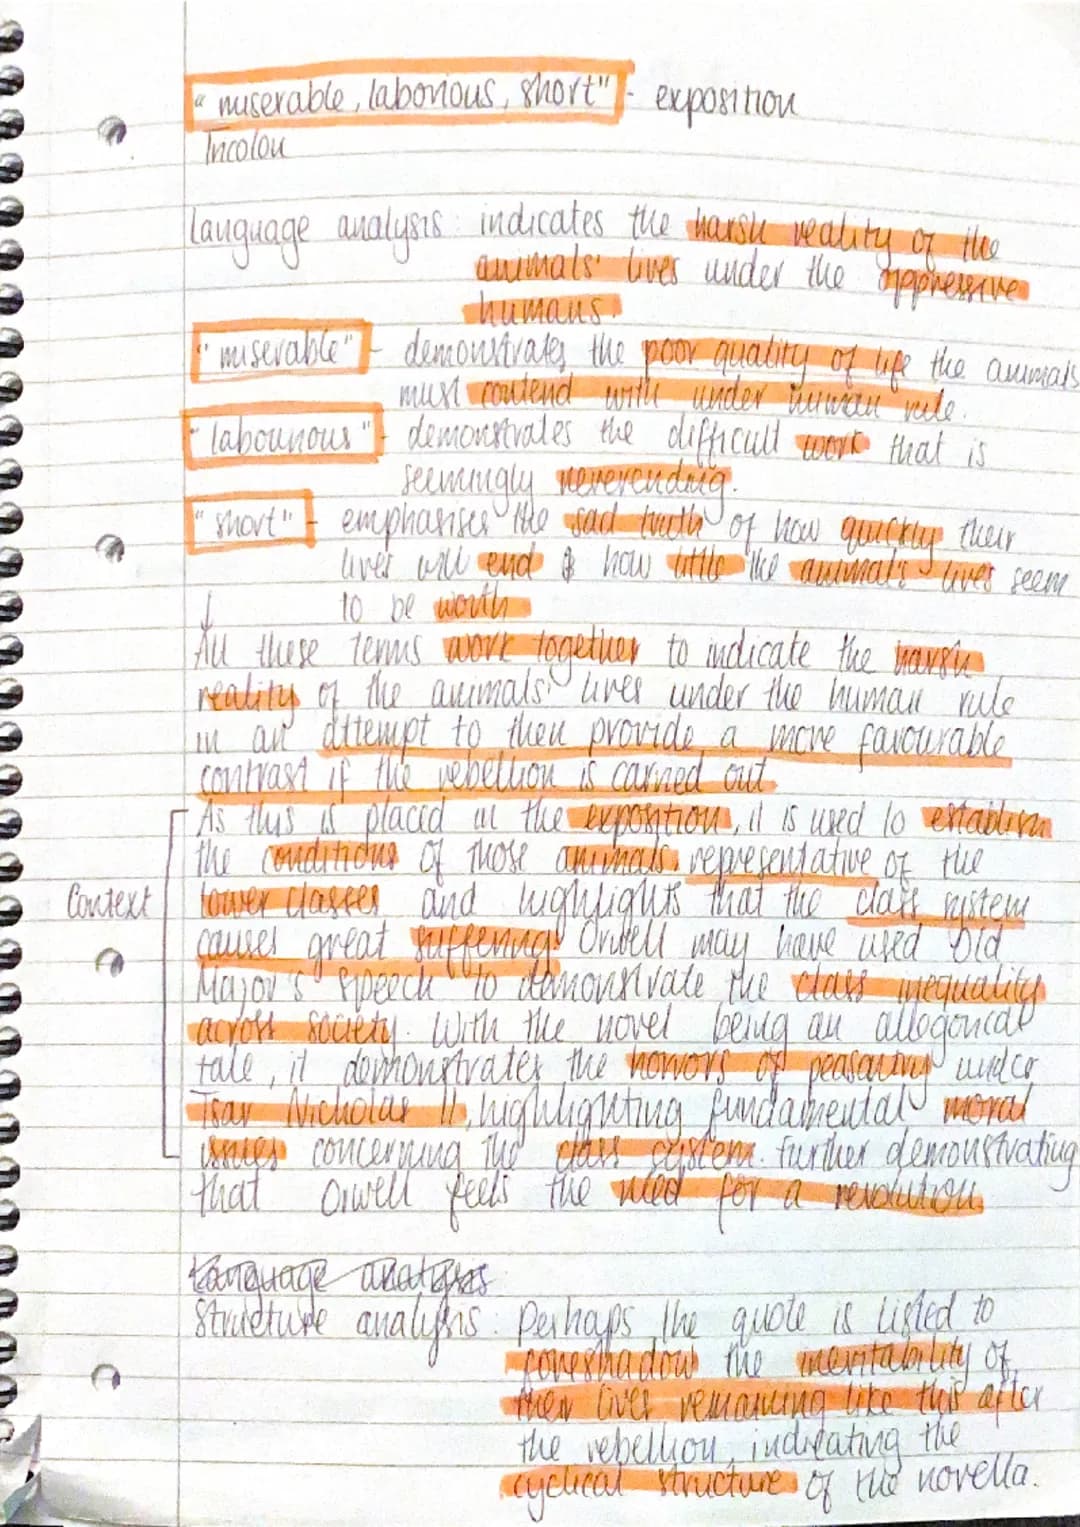 "miserable, laborious, short" - exposition
Tricolon
Language analysis: indicates the harsh reality of the
animals' lives under the oppressive
humans.
"miserable" - demonstrates the poor quality of life the animals
must contend with under human rule.
"labourious" - demonstrates the difficult work that is
seemingly neverending.
"short" - emphasises the sad truth of how quickly their
lives will end & how little the animals lives seem
to be worth
↓
All these terms work together to indicate the harsh
reality of the animals' lives under the human rule
in an attempt to then provide a more favourable
contrast if the rebellion is carried out
As this is placed in the exposition, it is used to establish
the conditions of those animals representative of the
Context
lower classes and highlights that the class system
causes great suffering. Orwell may have used Old
Major's speech to demonstrate the class inequality
across society. With the novel being an allegorical
tale, it demonstrates the horrors of peasantry under
Tsar Nicholas II, highlighting fundamental moral
issues concerning the class system. Further demonstrating
that Orwell feels the need for a revolution.
Language analysis
Structure analysis: Perhaps the quote is listed to
foreshadow the inevitability of
their lives remaining like this after
the rebellion, indicating the
cyclical structure of the novella.